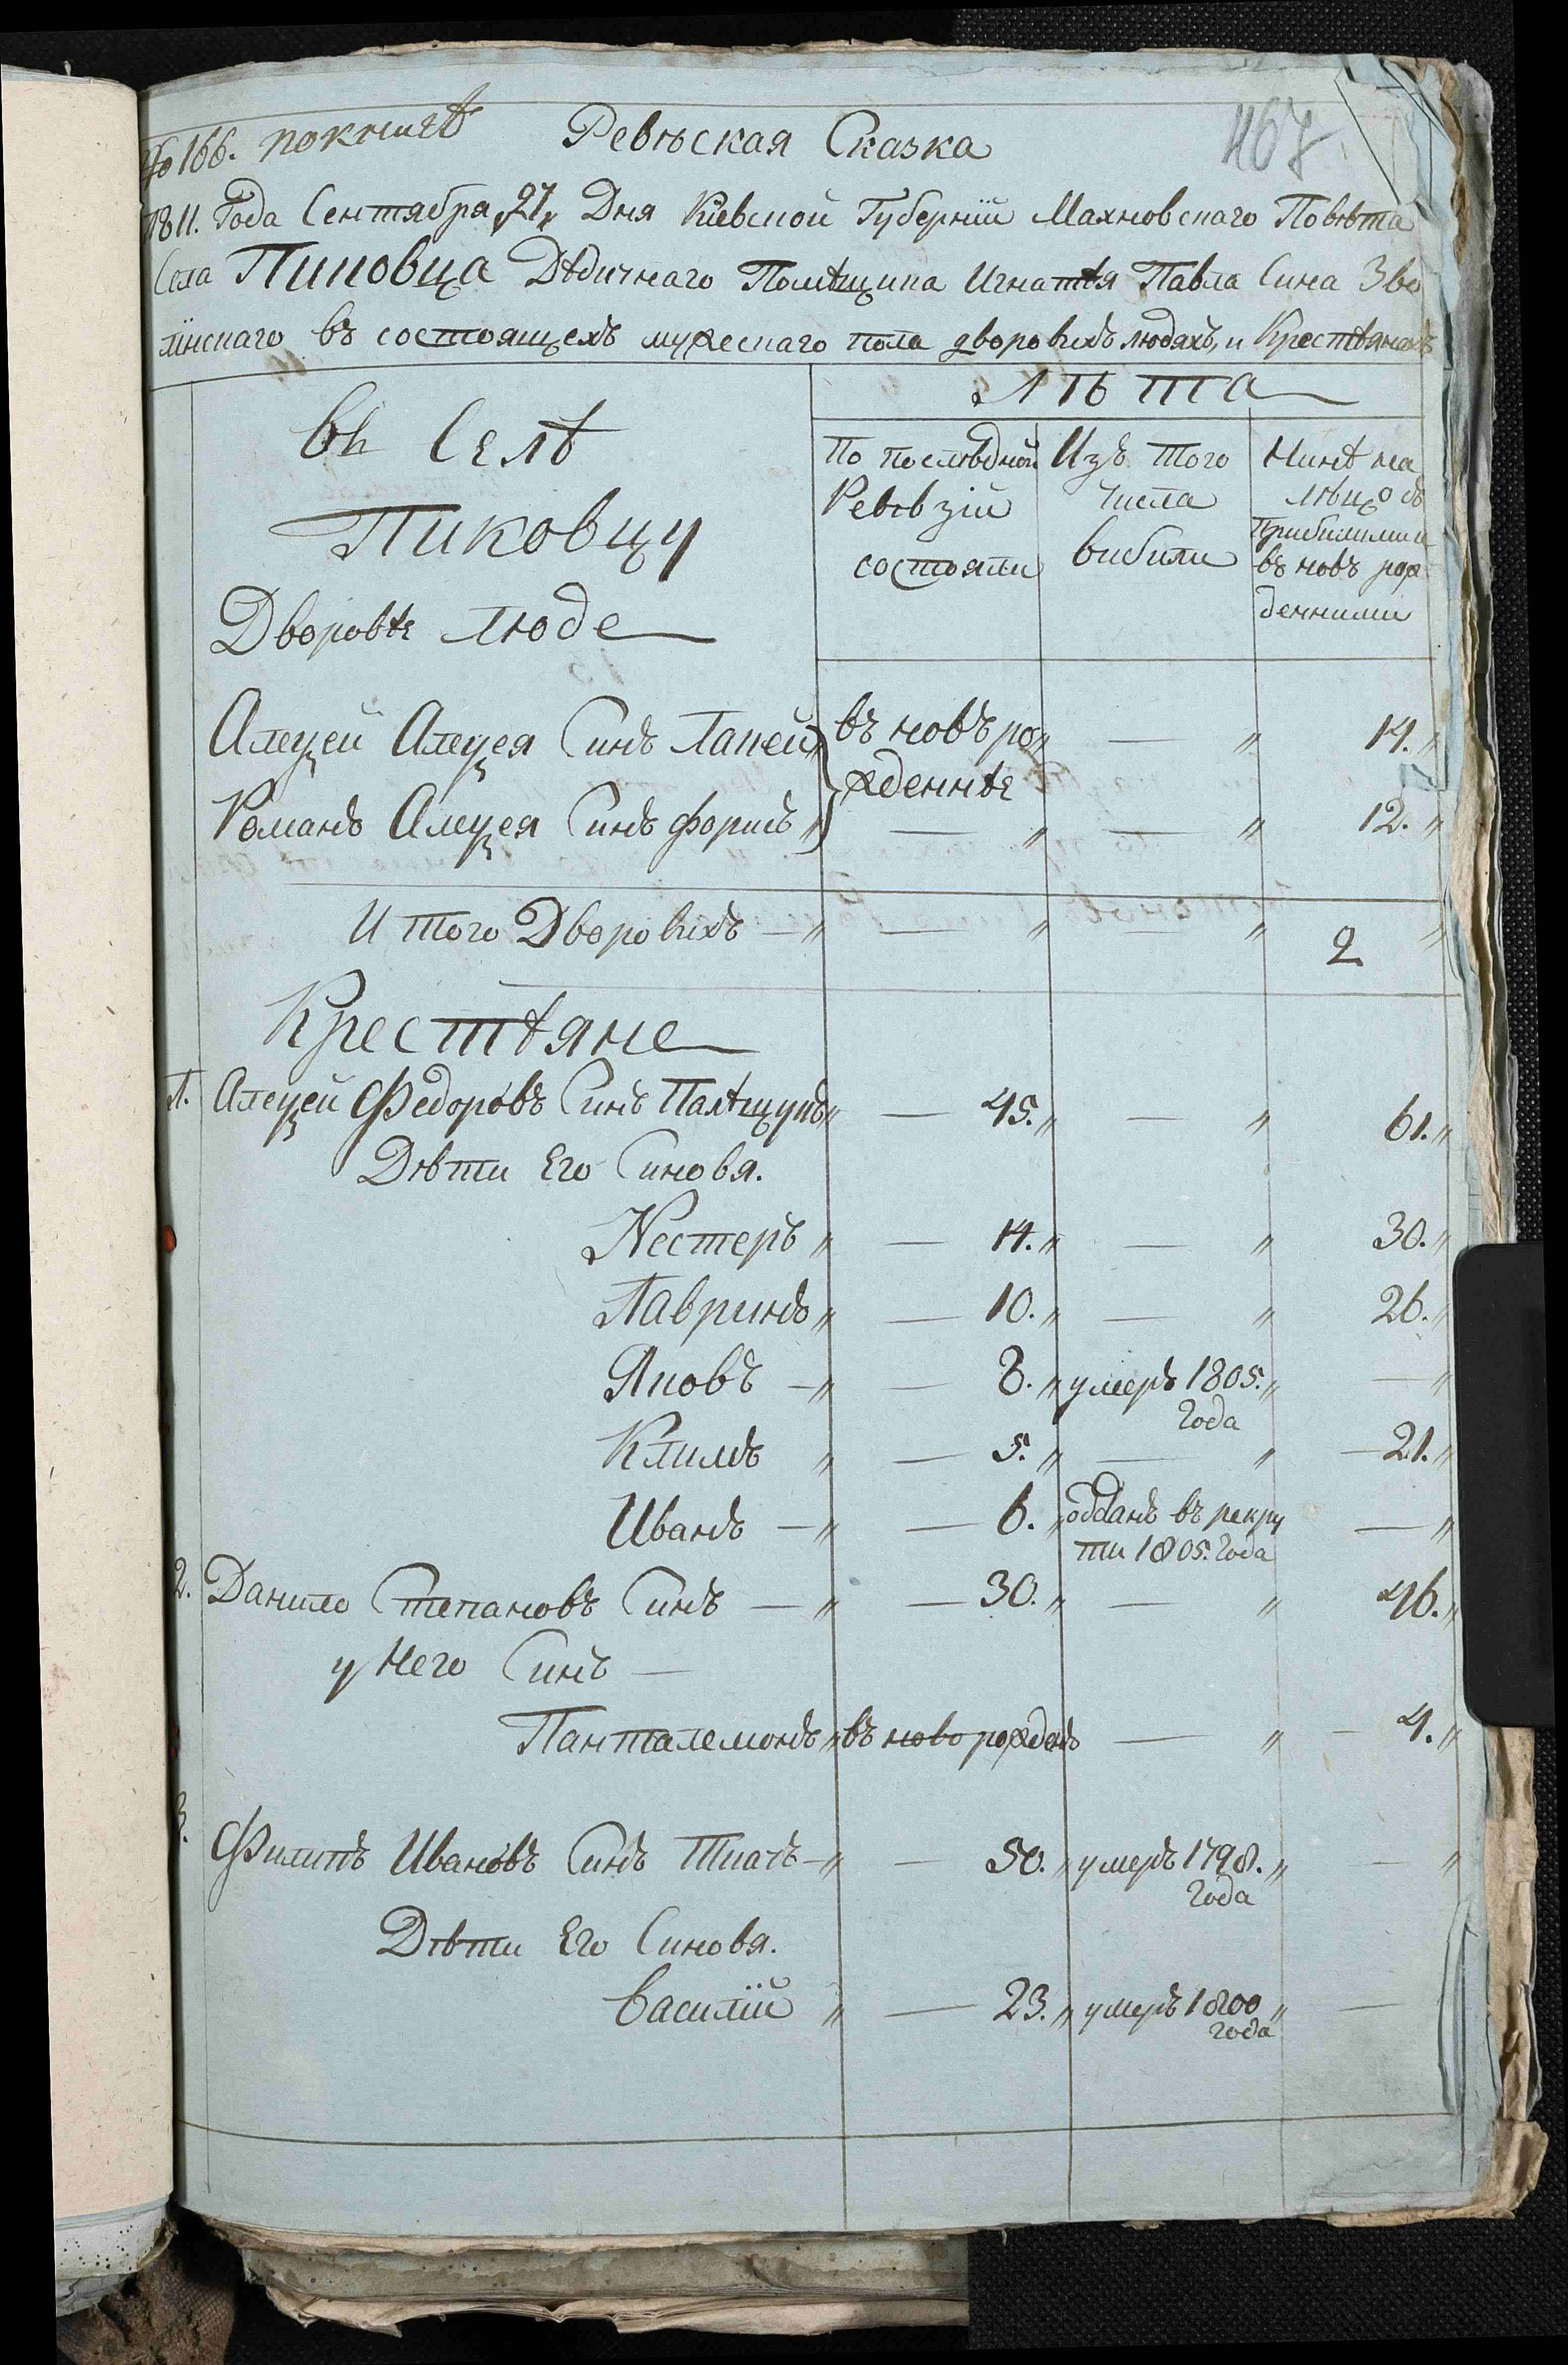 No 166. по книгѣ Ревѣская Сказка 467
1811. Года Сентября „27„ Дня Киевской Губернїи Махновскаго Повѣта
Села Пиковца Дѣдичнаго Помѣщика Игнатѣя Павла Сина Зво
лїнскаго въ состоящехъ мужескаго пола дворовихъ людяхъ, и Крестѣянахъ
Лѣта
въ Селѣ
Пиковцу
Дворовѣе Люде
По послѣдной
Ревѣзїи
состояли
Изъ того
Числа
вибили
Нинѣ на
лѣцо съ
Прибилими и
въ новъ рож
денними
Алецей Алецея Синъ Лапей „ въ новъ ро „ — „ 14. „
жденнѣе
Романъ Алецея Синъ „ — „ — „ 12. „
И того Дворовихъ — „ — „ — „ 2 „
Крестѣяне
1. Алецей Федоровъ Синъ „ — 45. „ — „ 61. „
Дѣти Его Синовя.
Нестеръ „ — 14. „ — „ 30. „
Лавринъ „ — 10. „ — „ 26. „
Яковъ — „ — 8. „ умеръ 1805. „ — „
Года
Климъ „ — 5. „ — „ — 21. „
Иванъ — „ — 6. „ оддань въ рекру — „
ти 1805. Года
2. Данило Степановъ Синъ — „ — 30. „ — „ 46. „
у Него Синъ —
Панталемонъ „ въ ново рожденъ — „ — 4. „
3.
Филипъ Ивановъ Синъ Ткачъ — „ — 50. „ умеръ 1798. „ — „
Года
Дѣти Его Синовя.
Василїй „ — 23. „ умеръ 1800 „ —
года